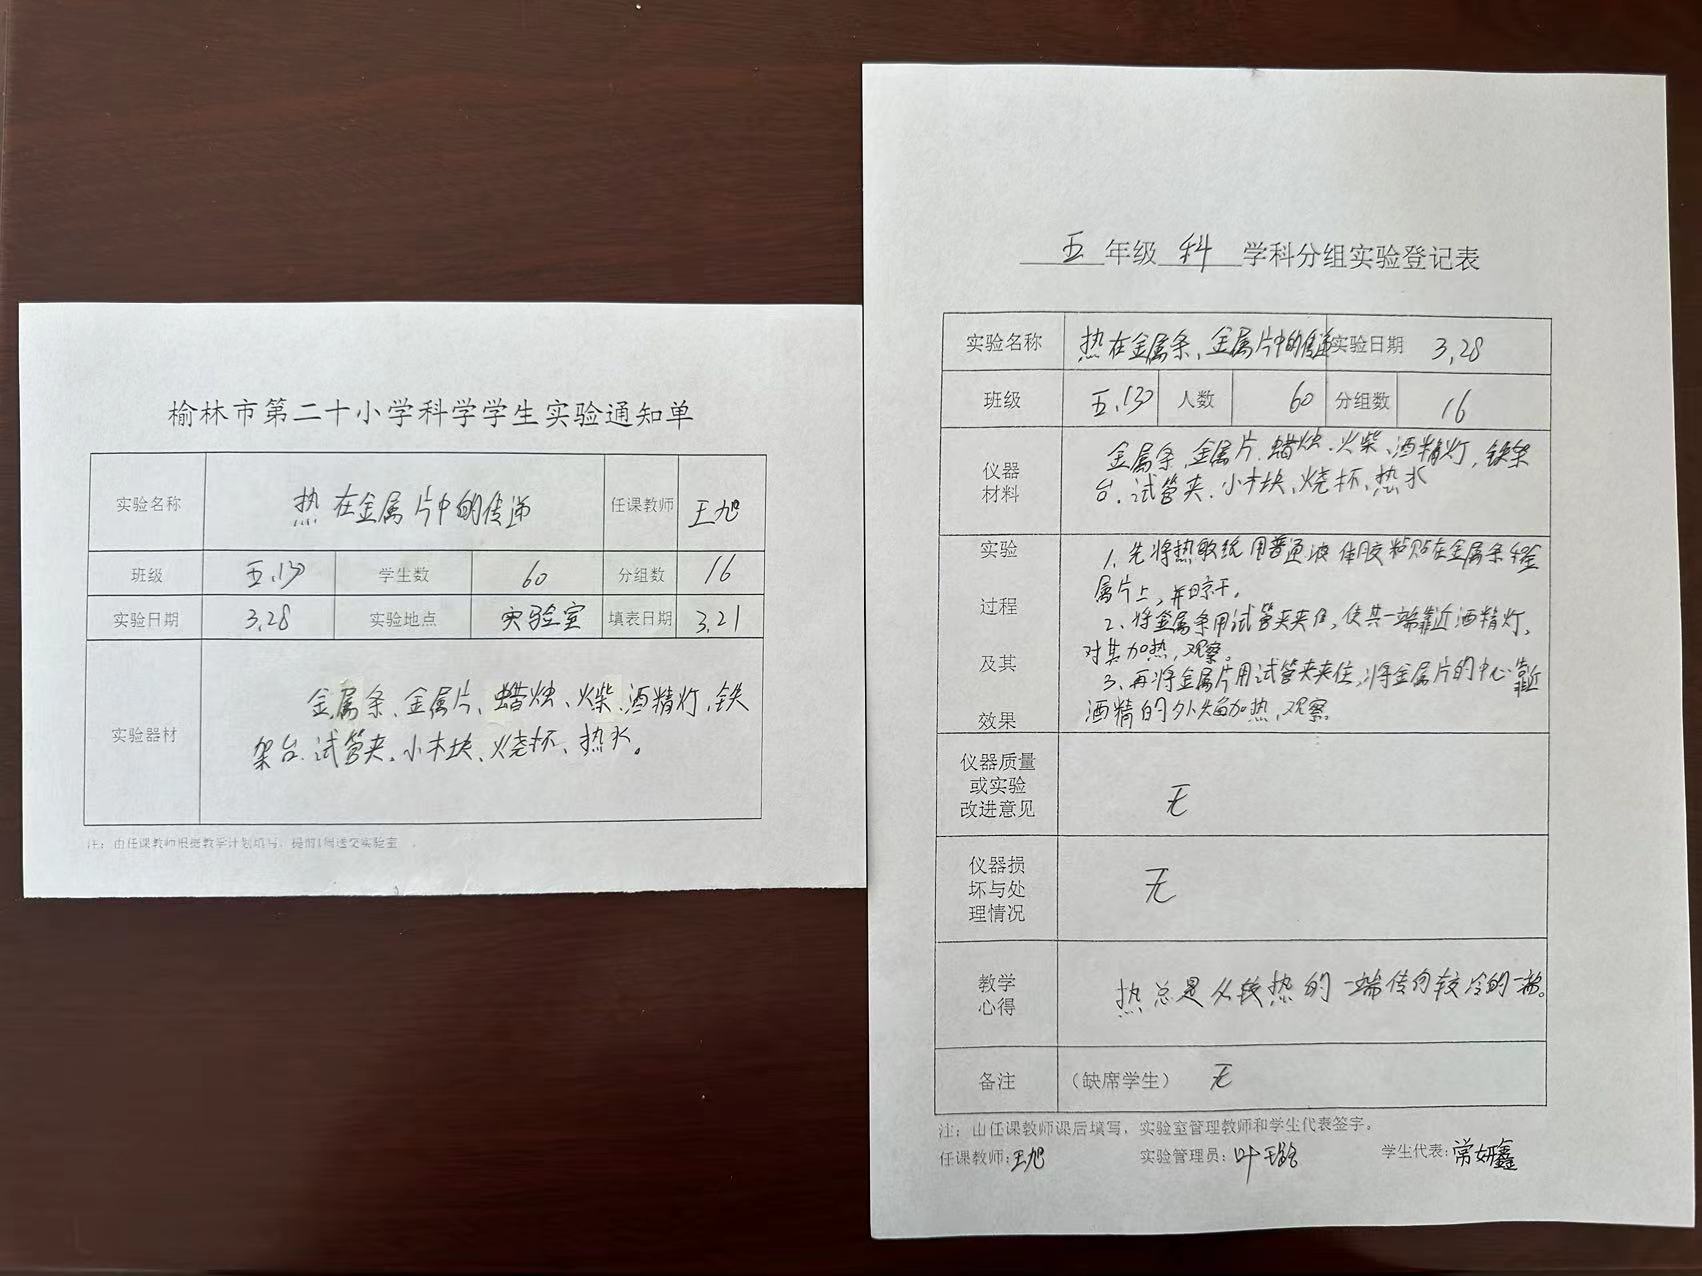 榆林市第二十小学科学学生实验通知单
实验名称 热在金属片中的传递 任课教师 王旭
班级 五.13 学生数 60 分组数 16
实验日期 3.28 实验地点 实验室 填表日期 3.21
实验器材
金属条、金属片、蜡烛、火柴、酒精灯、铁
架台、试管夹、小木块、火烧杯、热水。
注:由任课教师根据教学计划填写,提前1周送交实验室 。
五年级 科 学科分组实验登记表
实验名称 热在金属条、金属片中的传递 实验日期 3.28
班级 五.13 人数 60 分组数 16
仪器
材料
金属条、金属片、蜡烛、火柴、酒精灯、铁架
台、试管夹、小木块、火烧杯、热水
实验
过程
及其
效果
1、先将热敏纸用普通液体胶粘贴在金属条和金
属片上,并日京干。
2、将金属条用试管夹夹住,使其一端靠近酒精灯,
对其加热,观察。
3、再将金属片用试管夹夹住,将金属片的中心靠近
酒精的外焰加热,观察
仪器质量
或实验
改进意见
无
仪器损
坏与处
理情况
无
教学
心得
热总是从较热的一端传向较冷的一端。
备注 (缺席学生) 无
注:由任课教师课后填写,实验室管理教师和学生代表签字。
任课教师:王旭 实验管理员:叶 学生代表:常妍鑫